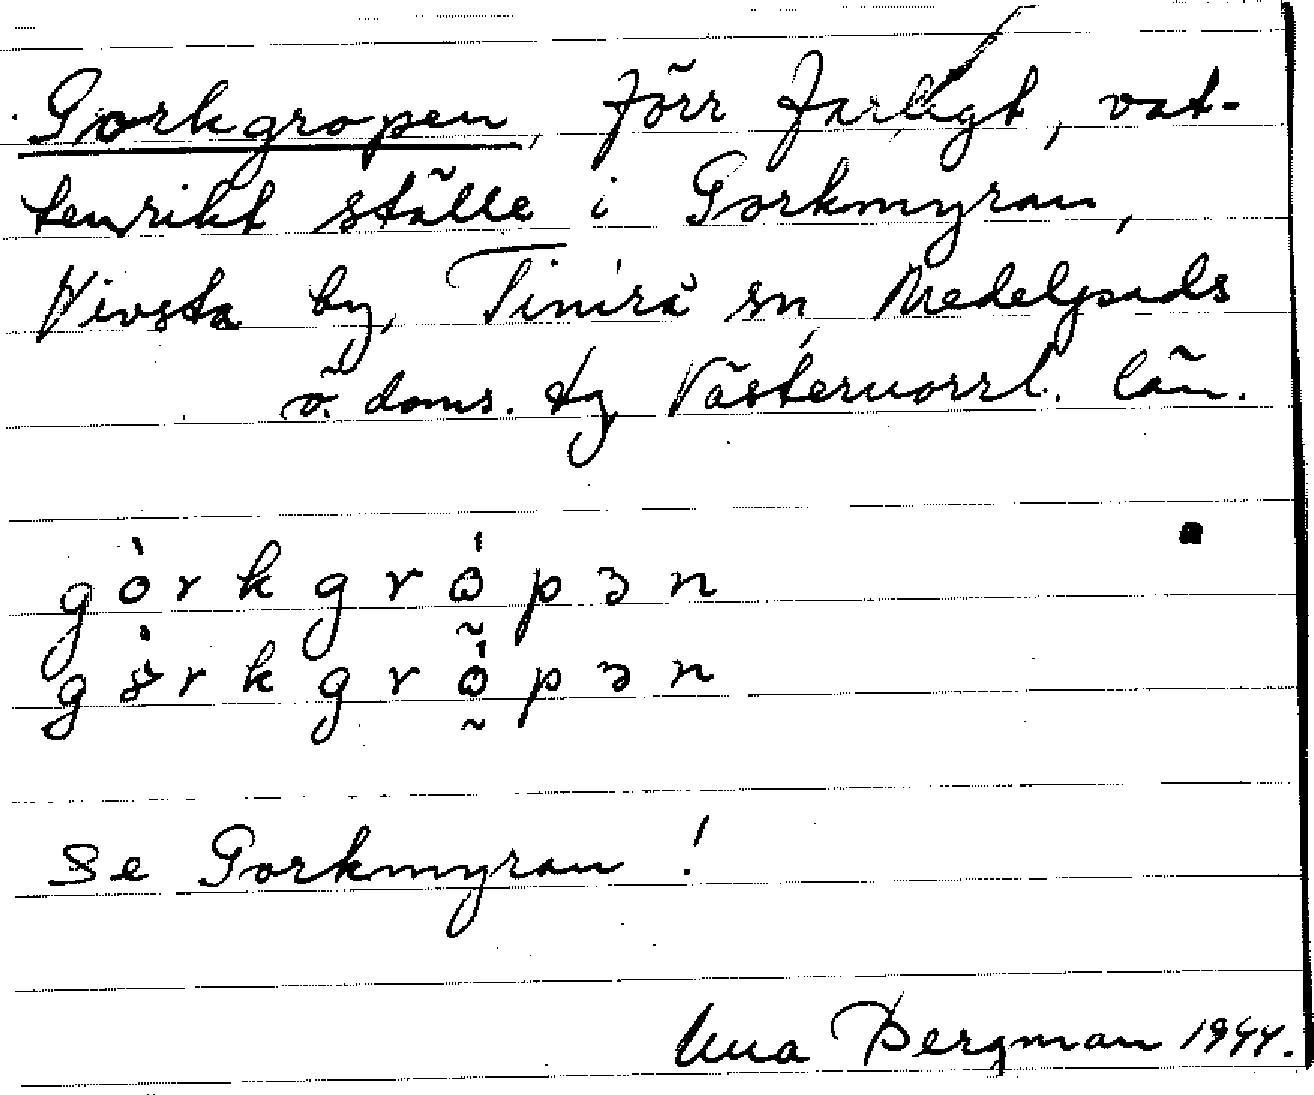 Gorkgropen, förr farligt, vat-
tenrikt ställe i Gorkmyran,
Vivsta by, Timrå sn, Medelpads
v. doms. tg, Västernorrl. län.
gòrkgrópən
gòrkgrópən
Se Gorkmyran!
Una Bergman 1944.